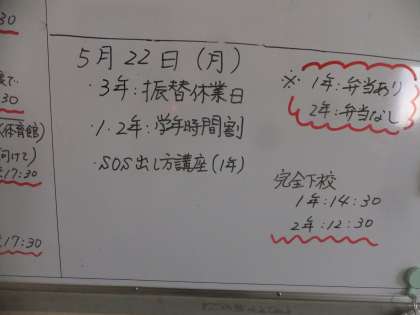 :30
5月22日(月)
・3年：振替休業日
・1.2年：学年時間割
・SOS出し方講座(1年)
※ 1年：弁当あり
2年：弁当なし
完全下校
1年：14：30
2年：12：30
で
:30
体育館)
向けて)
17:30
17:30